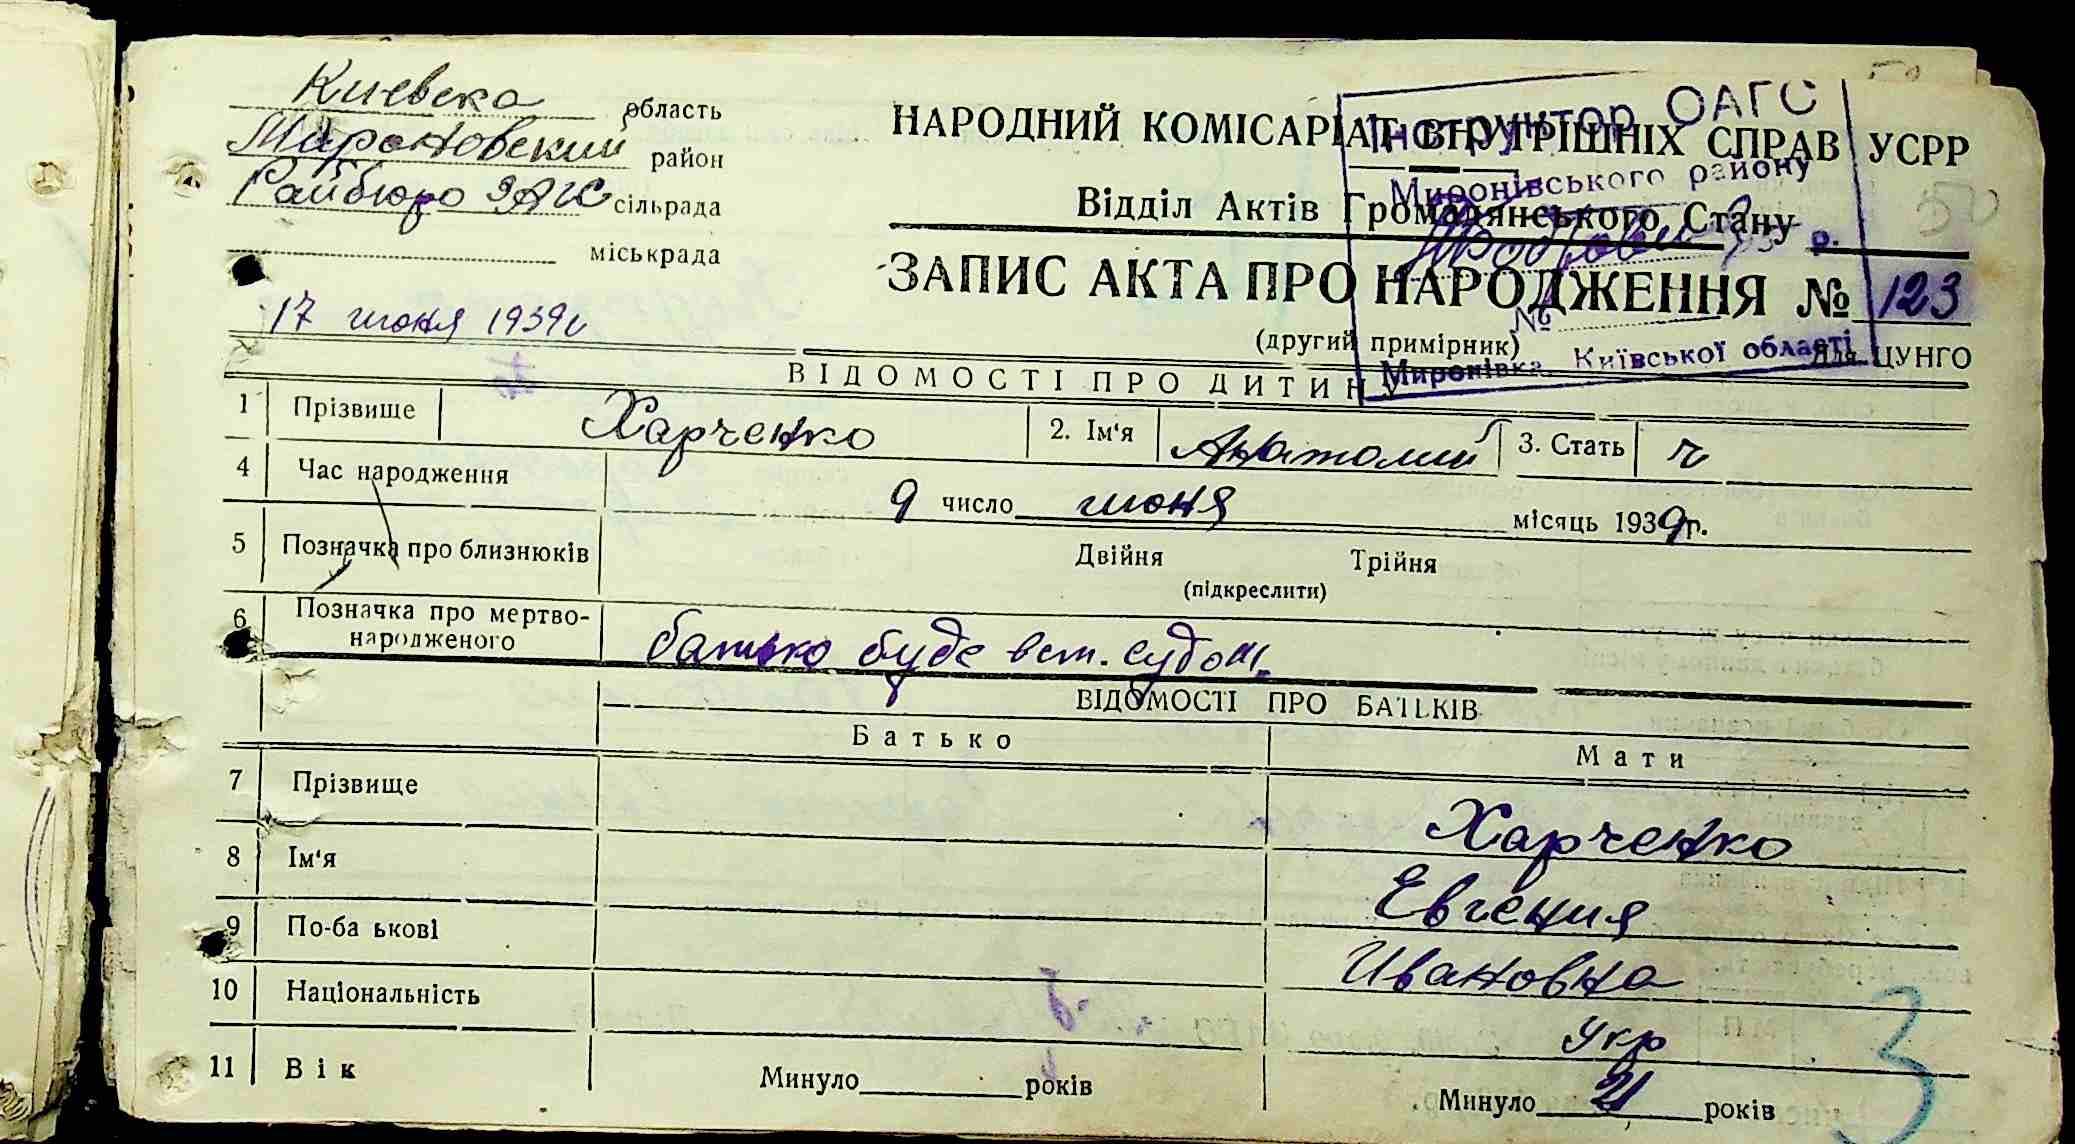 Киевска область
Мироновский район
Райбюро ЗАГС сільрада
міськрада
17 июня 1939г
НАРОДНИЙ КОМІСАРІАТ ВНУТРІШНІХ СПРАВ УСРР
Відділ Актів Громадянського Стану
ЗАПИС АКТА ПРО НАРОДЖЕННЯ № 123
(другий примірник)
Для ЦУНГО
Інструктор ОАГС
Миронівського району
р.
№
Миронівка, Київської області
50
ВІДОМОСТІ ПРО ДИТИНУ
1 Прізвище Харченко 2. Ім'я Анатолий 3. Стать ч
4 Час народження 9 число июня місяць 1939 р.
5 Позначка про близнюків Двійня Трійня
(підкреслити)
6 Позначка про мертво-
народженого батько буде вст. судом.
ВІДОМОСТІ ПРО БАТЬКІВ
Батько Мати
7 Прізвище Харченко
8 Ім'я Евгения
9 По-ба ькові Ивановна
10 Національність Укр
11 Вік Минуло років Минуло 21 років
3